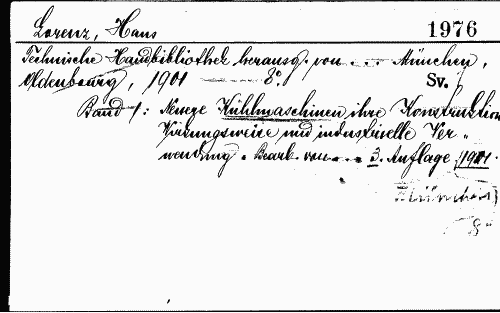 Lorenz, Hans
1976
Technische Handbibliothek herausg. von ... München,
Oldenbourg, 1901 8°.
Sv.
Band 1: Neuere Kühlmaschinen ihre Konstruktion
Wirkungsweise und industrielle Ver-
wendung. Bearb. von ... 3. Auflage 1901.
München
8°